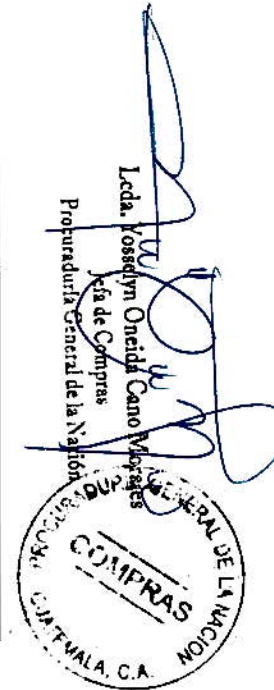 Lcda. Yosselyn Oneida Cano Morales
Jefa de Compras
Procuraduría General de la Nación
PROCURADURIA GENERAL DE LA NACION
COMPRAS
GUATEMALA, C.A.